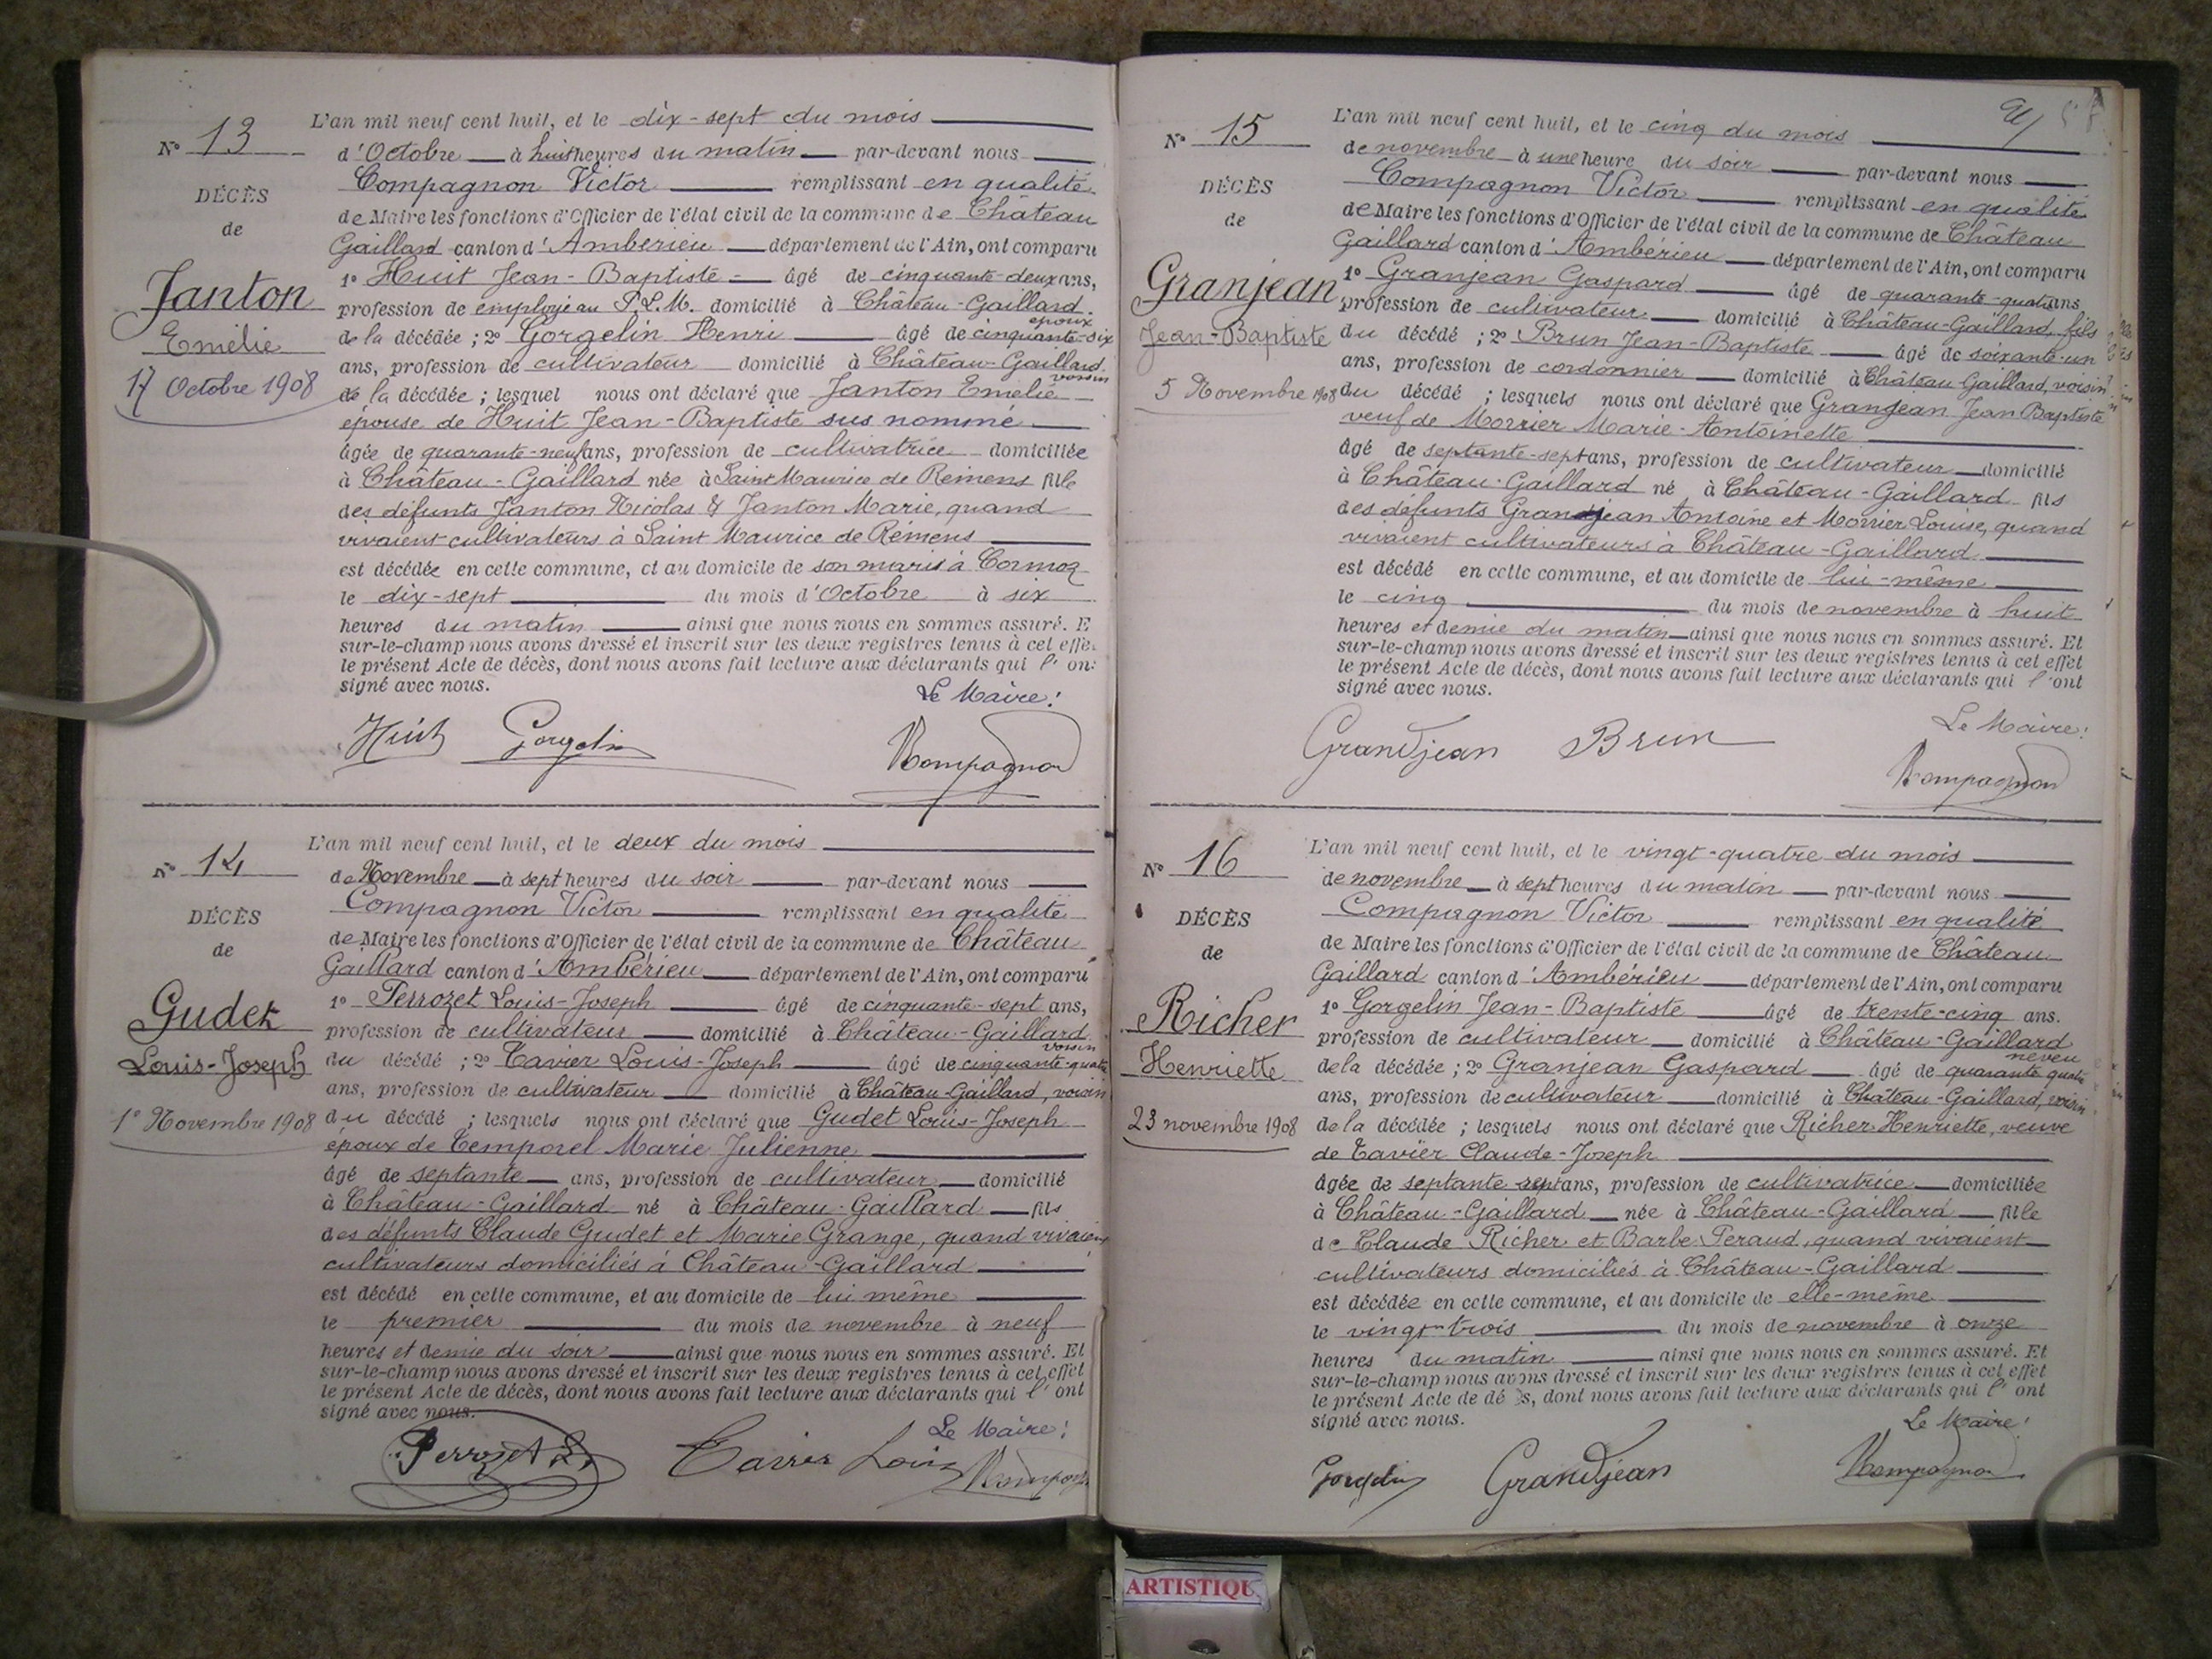 N° 13
DÉCÈS
de
Janton
Emélie
17 Octobre 1908
L'an mil neuf cent huit, et le dix-sept du mois
d'Octobre à huit heures du matin par-devant nous
Compagnon Victor remplissant en qualité
de Maire les fonctions d'Officier de l'état civil de la commune de Château
Gaillard canton d'Ambérieu département de l'Ain, ont comparu
1° Huit Jean-Baptiste âgé de cinquante-deux ans,
profession de employé au P.L.M. domicilié à Château-Gaillard
époux
de la décédée ; 2° Gorgelin Henri âgé de cinquante-six
ans, profession de cultivateur domicilié à Château-Gaillard
voisin
de la décédée ; lesquel nous ont déclaré que Janton Emélie
épouse de Huit Jean-Baptiste sus nommé
âgée de quarante-neuf ans, profession de cultivatrice domiciliée
à Château-Gaillard née à Saint Maurice de Rémens fille
des défunts Janton Nicolas & Janton Marie, quand
vivaient cultivateurs à Saint Maurice de Rémens
est décédée en cette commune, et au domicile de son maris à Cormoz
le dix-sept du mois d'Octobre à six
heures du matin ainsi que nous nous en sommes assuré. E
sur-le-champ nous avons dressé et inscrit sur les deux registres tenus à cet effe
le présent Acte de décès, dont nous avons fait lecture aux déclarants qui l'on
signé avec nous.
Le Maire :
Huit Gorgelin Compagnon
N° 14
DÉCÈS
de
Gudet
Louis-Joseph
1° Novembre 1908
L'an mil neuf cent huit, et le deux du mois
de Novembre à sept heures du soir par-devant nous
Compagnon Victor remplissant en qualité
de Maire les fonctions d'Officier de l'état civil de la commune de Château
Gaillard canton d'Ambérieu département de l'Ain, ont comparu
1° Perrozet Louis-Joseph âgé de cinquante-sept ans,
profession de cultivateur domicilié à Château-Gaillard
voisin
du décédé ; 2° Tavier Louis-Joseph âgé de cinquante-quatre
ans, profession de cultivateur domicilié à Château-Gaillard, voisin
du décédé ; lesquels nous ont déclaré que Gudet Louis-Joseph
époux de Temporel Marie Julienne
âgé de septante ans, profession de cultivateur domicilié
à Château-Gaillard né à Château-Gaillard fils
des défunts Claude Gudet et Marie Grange, quand vivaient
cultivateurs domiciliés à Château-Gaillard
est décédé en cette commune, et au domicile de lui même
le premier du mois de novembre à neuf
heures et demie du soir ainsi que nous nous en sommes assuré. Et
sur-le-champ nous avons dressé et inscrit sur les deux registres tenus à cet effet
le présent Acte de décès, dont nous avons fait lecture aux déclarants qui l'ont
signé avec nous.
Le Maire :
Perrozet L. Tavier Louis
N° 15
DÉCÈS
de
Granjean
Jean-Baptiste
5 Novembre 1908
L'an mil neuf cent huit, et le cinq du mois
de novembre à une heure du soir par-devant nous
Compagnon Victor remplissant en qualité
de Maire les fonctions d'Officier de l'état civil de la commune de Château
Gaillard canton d'Ambérieu département de l'Ain, ont comparu
1° Granjean Gaspard âgé de quarante-quatre ans,
profession de cultivateur domicilié à Château-Gaillard, fils
du décédé ; 2° Brun Jean-Baptiste âgé de soixante-un
ans, profession de cordonnier domicilié à Château Gaillard, voisin
du décédé ; lesquels nous ont déclaré que Granjean Jean Baptiste
veuf de Morrier Marie-Antoinette
âgé de septante-sept ans, profession de cultivateur domicilié
à Château-Gaillard né à Château-Gaillard fils
des défunts Granjean Antoine et Morrier Louise, quand
vivaient cultivateurs à Château-Gaillard
est décédé en cette commune, et au domicile de lui-même
le cinq du mois de novembre à huit
heures et demie du matin ainsi que nous nous en sommes assuré. Et
sur-le-champ nous avons dressé et inscrit sur les deux registres tenus à cet effet
le présent Acte de décès, dont nous avons fait lecture aux déclarants qui l'ont
signé avec nous.
Le Maire :
Grandjean Brun Compagnon
N° 16
DÉCÈS
de
Richer
Henriette
23 novembre 1908
L'an mil neuf cent huit, et le vingt-quatre du mois
de novembre à sept heures du matin par-devant nous
Compagnon Victor remplissant en qualité
de Maire les fonctions d'Officier de l'état civil de la commune de Château
Gaillard canton d'Ambérieu département de l'Ain, ont comparu
1° Gorgelin Jean-Baptiste âgé de trente-cinq ans.
profession de cultivateur domicilié à Château-Gaillard
neveu
de la décédée ; 2° Granjean Gaspard âgé de quarante quatre
ans, profession de cultivateur domicilié à Château-Gaillard, voisin
de la décédée ; lesquels nous ont déclaré que Richer Henriette, veuve
de Tavier Claude-Joseph
âgée de septante sept ans, profession de cultivatrice domiciliée
à Château-Gaillard née à Château-Gaillard fille
de Claude Richer et Barbe Peraud, quand vivaient
cultivateurs domiciliés à Château-Gaillard
est décédée en cette commune, et au domicile de elle-même
le vingt-trois du mois de novembre à onze
heures du matin ainsi que nous nous en sommes assuré. Et
sur-le-champ nous avons dressé et inscrit sur les deux registres tenus à cet effet
le présent Acte de dé s, dont nous avons fait lecture aux déclarants qui l'ont
signé avec nous.
Le Maire !
Gorgelin Grandjean Compagnon
ARTISTIQU